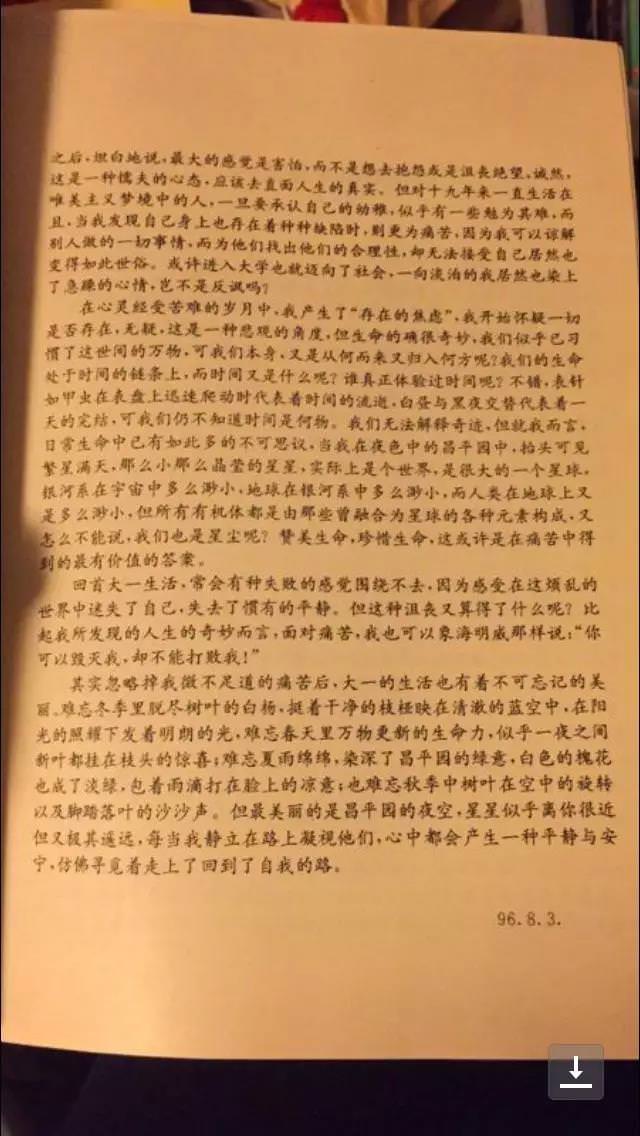 之后,坦白地说,最大的感觉是害怕,而不是想去抱怨或是沮丧绝望,诚然,
这是一种懦夫的心态,应该去直面人生的真实。但对十九年来一直生活在
唯美主义梦境中的人,一旦要承认自己的幼稚,似乎有一些勉为其难,而
且,当我发现自己身上也存在着种种缺陷时,则更为痛苦,因为我可以谅解
别人做的一切事情,而为他们找出他们的合理性,却无法接受自己居然也
变得如此世俗。或许进入大学也就迈向了社会,一向淡泊的我居然也染上
了急躁的心情,岂不是反讽吗?
在心灵经受苦难的岁月中,我产生了“存在的焦虑”,我开始怀疑一切
是否存在,无疑,这是一种悲观的角度,但生命的确很奇妙,我们似乎已习
惯了这世间的万物,可我们本身,又是从何而来又归入何方呢?我们的生命
处于时间的链条上,而时间又是什么呢?谁真正体验过时间呢?不错,表针
如甲虫在表盘上迅速爬动时代表着时间的流逝,白昼与黑夜交替代表着一
天的完结,可我们仍不知道时间是何物。我们无法解释奇迹,但就我而言,
日常生命中已有如此多的不可思议,当我在夜色中的昌平园中,抬头可见
繁星满天,那么小那么晶莹的星星,实际上是个世界,是很大的一个星球。
银河系在宇宙中多么渺小,地球在银河系中多么渺小,而人类在地球上又
是多么渺小,但所有有机体都是由那些曾融合为星球的各种元素构成,又
怎么不能说,我们也是星尘呢?赞美生命,珍惜生命,这或许是在痛苦中得
到的最有价值的答案。
回首大一生活,常会有种失败的感觉围绕不去,因为感受在这烦乱的
世界中迷失了自己,失去了惯有的平静。但这种沮丧又算得了什么呢?比
起我所发现的人生的奇妙而言,面对痛苦,我也可以象海明威那样说:“你
可以毁灭我,却不能打败我!”
其实忽略掉我微不足道的痛苦后,大一的生活也有着不可忘记的美
丽。难忘冬季里脱尽树叶的白杨,挺着干净的枝桠映在清澈的蓝空中,在阳
光的照耀下发着明朗的光,难忘春天里万物更新的生命力,似乎一夜之间
新叶都挂在枝头的惊喜;难忘夏雨绵绵,染深了昌平园的绿意,白色的槐花
也成了淡绿,包着雨滴打在脸上的凉意;也难忘秋季中树叶在空中的旋转
以及脚踏落叶的沙沙声。但最美丽的是昌平园的夜空,星星似乎离你很近
但又极其遥远,每当我静立在路上凝视他们,心中都会产生一种平静与安
宁,仿佛寻觅着走上了回到了自我的路。
96.8.3.